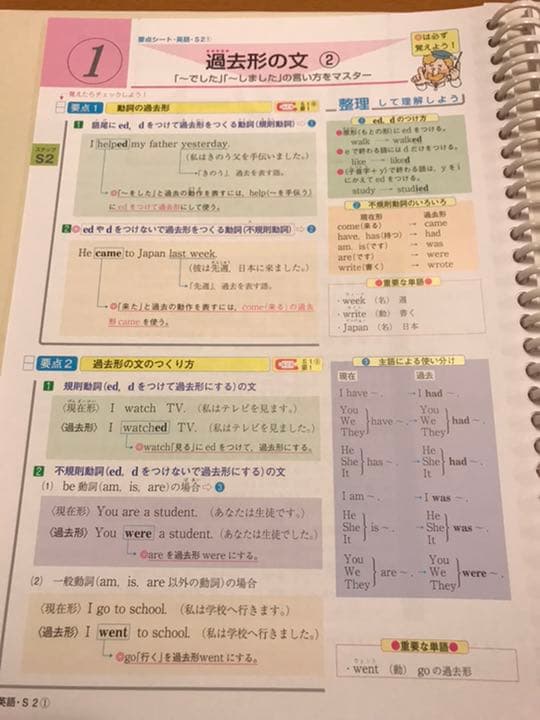 要点シート・英語・S2①
1
過去形の文 ②
「〜でした」「〜しました」の言い方をマスター
◎は必ず
覚えよう!
覚えたらチェックしよう!
要点1 動詞の過去形
ステップ
S2
1 語尾に ed, d をつけて過去形をつくる動詞(規則動詞)⇨❶
I helped my father yesterday.
(私はきのう父を手伝いました。)
「きのう」 過去を表す語。
◎「〜をした」と過去の動作を表すには, help(〜を手伝う)
に ed をつけて過去形にして使う。
2 ◎ed や d をつけないで過去形をつくる動詞(不規則動詞)⇨❷
He came to Japan last week.
(彼は先週, 日本に来ました。)
「先週」 過去を表す語。
◎「来た」と過去の動作を表すには, come(来る)の過去
形 came を使う。
整理 して理解しよう
❶ ed, d のつけ方
●原形(もとの形)に ed をつける。
walk → walked
●e で終わる語には d だけをつける。
like → liked
●(子音字+y)で終わる語は, y を i
にかえて ed をつける。
study → studied
❷ 不規則動詞のいろいろ
現在形 過去形
come(来る) → came
have, has(持つ) → had
am, is(です) → was
are(です) → were
write(書く) → wrote
●重要な単語●
・week (名) 週
・write (動) 書く
・Japan (名) 日本
要点2 過去形の文のつくり方
1 規則動詞(ed, d をつけて過去形にする)の文
〈現在形〉 I watch TV. (私はテレビを見ます。)
〈過去形〉 I watched TV. (私はテレビを見ました。)
◎watch「見る」に ed をつけて, 過去形にする。
2 不規則動詞(ed, d をつけないで過去形にする)の文
(1) be 動詞(am, is, are)の場合⇨❸
〈現在形〉 You are a student. (あなたは生徒です。)
〈過去形〉 You were a student. (あなたは生徒でした。)
◎are を過去形 were にする。
(2) 一般動詞(am, is, are 以外の動詞)の場合
〈現在形〉 I go to school. (私は学校へ行きます。)
〈過去形〉 I went to school. (私は学校へ行きました。)
◎go「行く」を過去形 went にする。
❸ 主語による使い分け
現在 過去
I have 〜. → I had 〜.
You You
We have 〜. → We had 〜.
They They
He He
She has 〜. → She had 〜.
It It
I am 〜. → I was 〜.
He He
She is 〜. → She was 〜.
It It
You You
We are 〜. → We were 〜.
They They
●重要な単語●
・went (動) go の過去形
英語・S2①